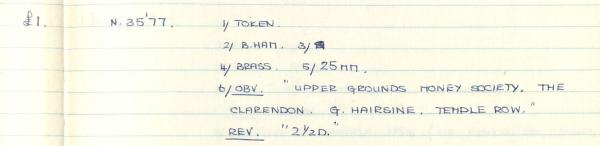 £1. N. 35'77. 1/ TOKEN.
2/ B.HAM. 3/
4/ BRASS. 5/ 25MM.
6/ OBV. "UPPER GROUNDS MONEY SOCIETY. THE
CLARENDON. G. HAIRSINE, TEMPLE ROW."
REV. "2½D."